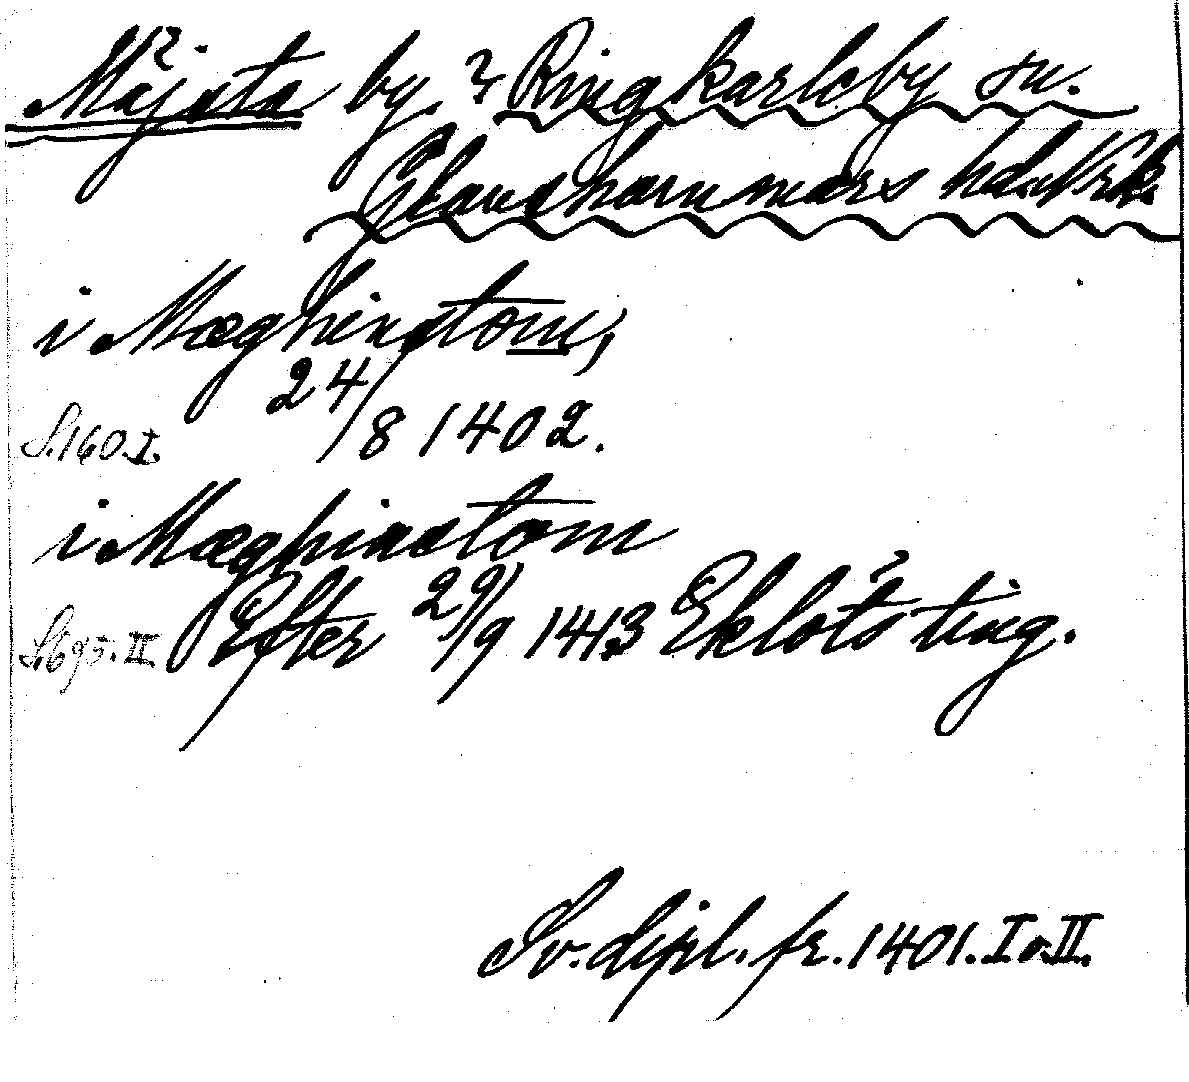 Mäjsta by. ? Ringkarleby sn.
Glanshammars hd. Nrk.
i Mæghinstom,
24/8 1402.
S. 160. I.
i Mæghinstom
S. 695. II. Efter 29/9 1413 Eklöts ting.
Sv. dipl. fr. 1401. I o. II.